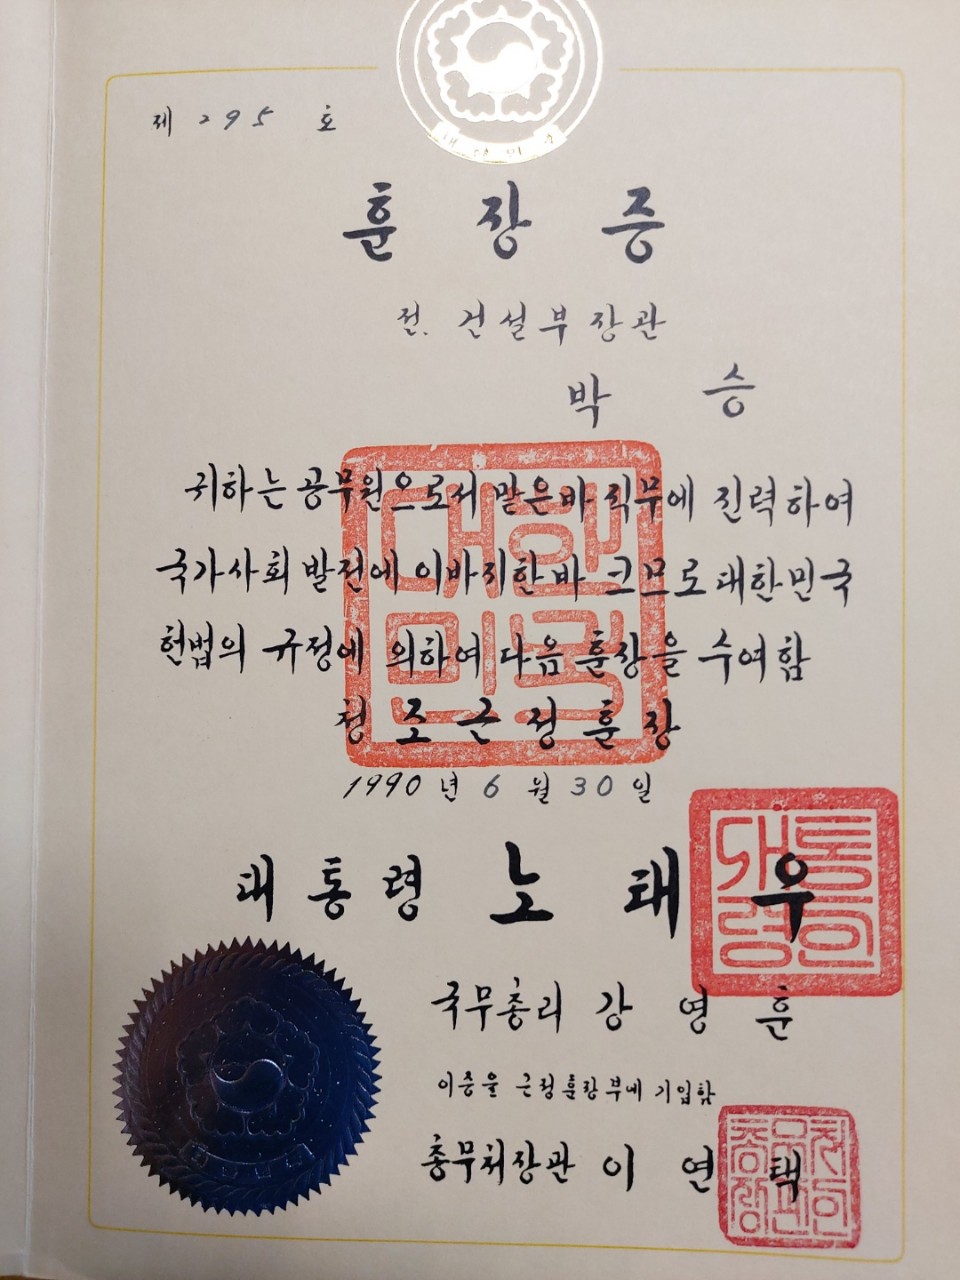 대한민국
제 295 호
훈장증
전. 건설부장관
박 승
귀하는 공무원으로서 맡은바 직무에 진력하여
국가사회 발전에 이바지한바 크므로 대한민국
헌법의 규정에 의하여 다음 훈장을 수여함
청조근정훈장
1990년 6월 30일
대통령 노태우
국무총리 강영훈
이증을 근정훈장부에 기입함
총무처장관 이연택
대한민국
대통령의